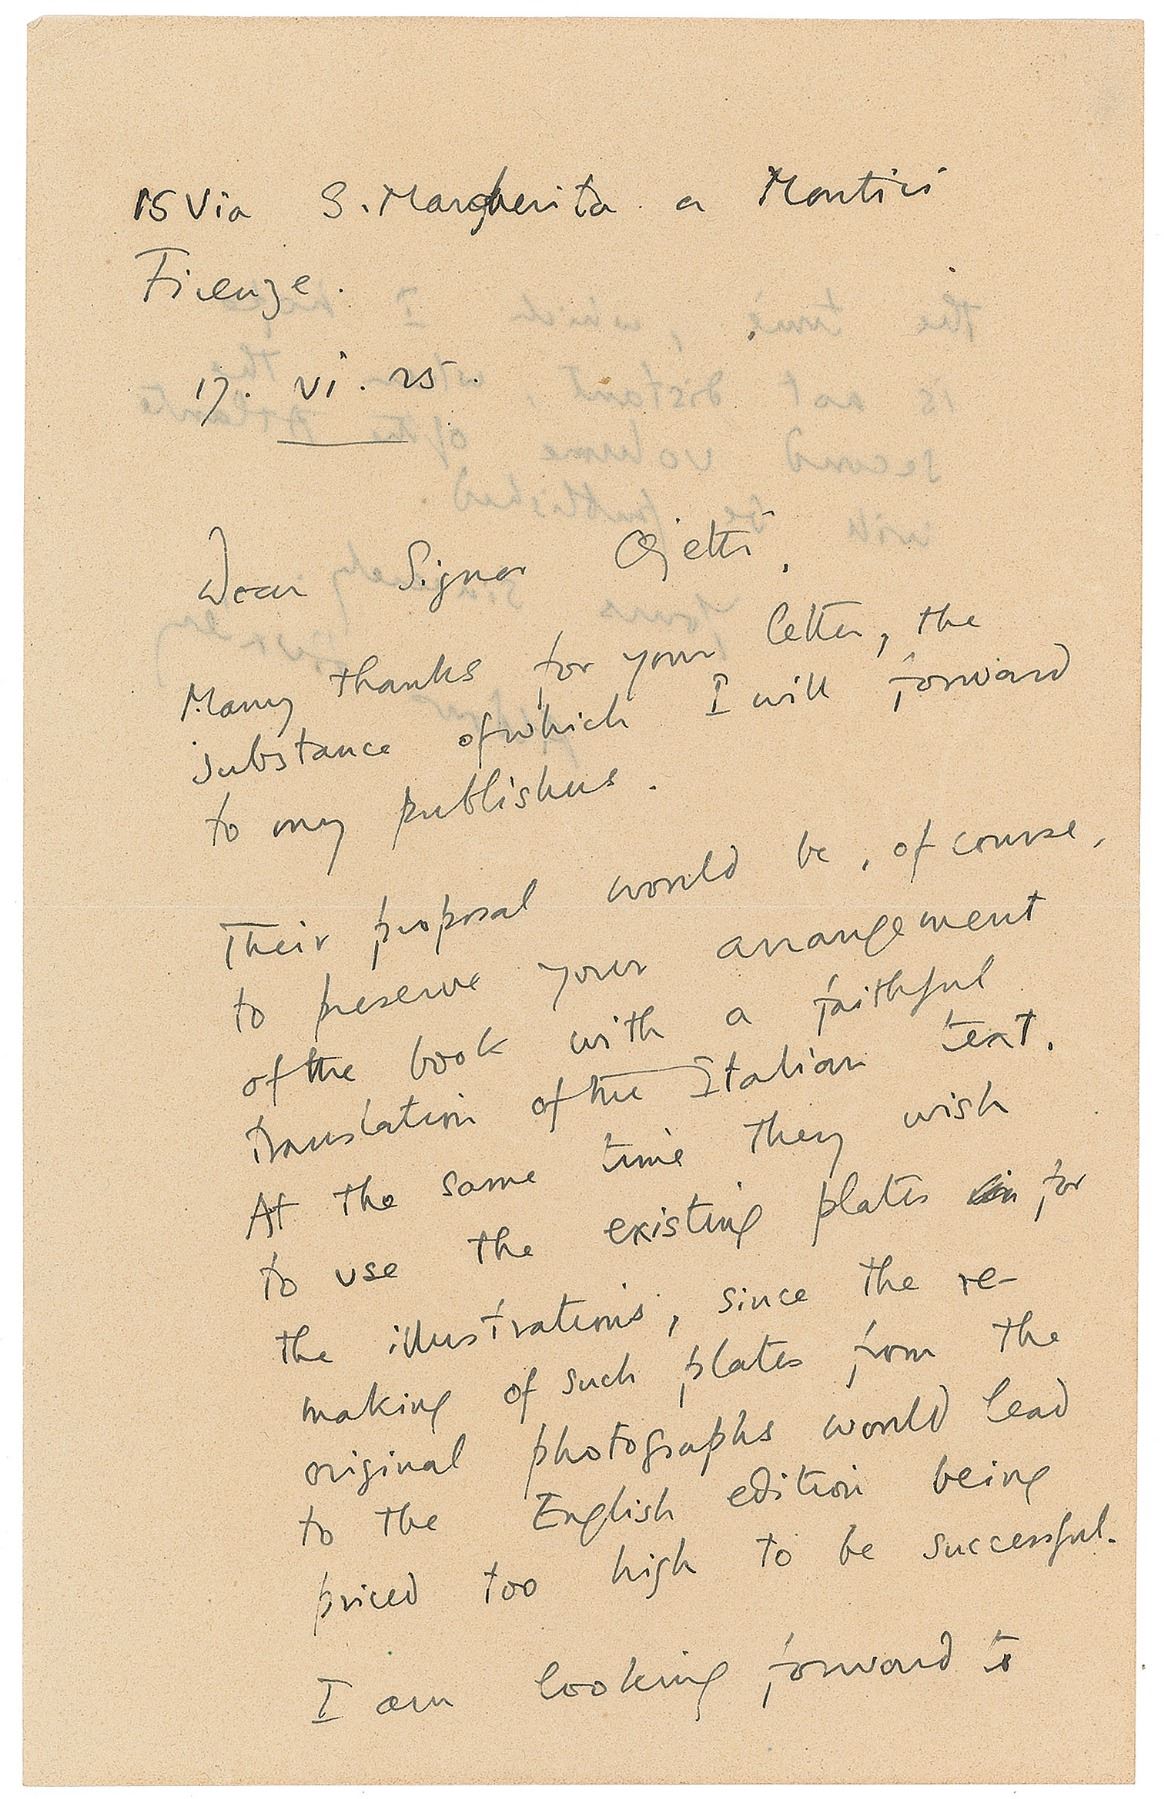 15 Via S. Margherita a Montici
Firenze.
17. vi. 25.
Dear Signor Ojetti,
Many thanks for your letter, the
substance of which I will forward
to my publishers.
Their proposal would be, of course,
to preserve your arrangement
of the book with a faithful
translation of the Italian text.
At the same time they wish
to use the existing plates for
the illustrations, since the re-
making of such plates from the
original photographs would lead
to the English edition being
priced too high to be successful.
I am looking forward to
the time, which I hope
is not distant, when the
second volume of the Atlante
will be published.
Yours sincerely